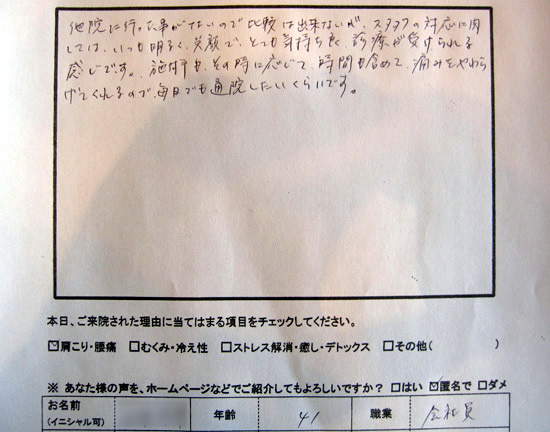 他院に行った事がないので比較は出来ないが、スタッフの対応に関
しては、いつも明るく、笑顔で、とても気持ち良く診療が受けられる
感じです。施術も、その時に応じて、時間も含めて、痛みをやわら
げてくれるので、毎日でも通院したいくらいです。
本日、ご来院された理由に当てはまる項目をチェックしてください。
☑肩こり・腰痛 □むくみ・冷え性 □ストレス解消・癒し・デトックス □その他( )
※ あなた様の声を、ホームページなどでご紹介してもよろしいですか? □はい ☑匿名で □ダメ
お名前 年齢 41 職業 会社員
(イニシャル可)